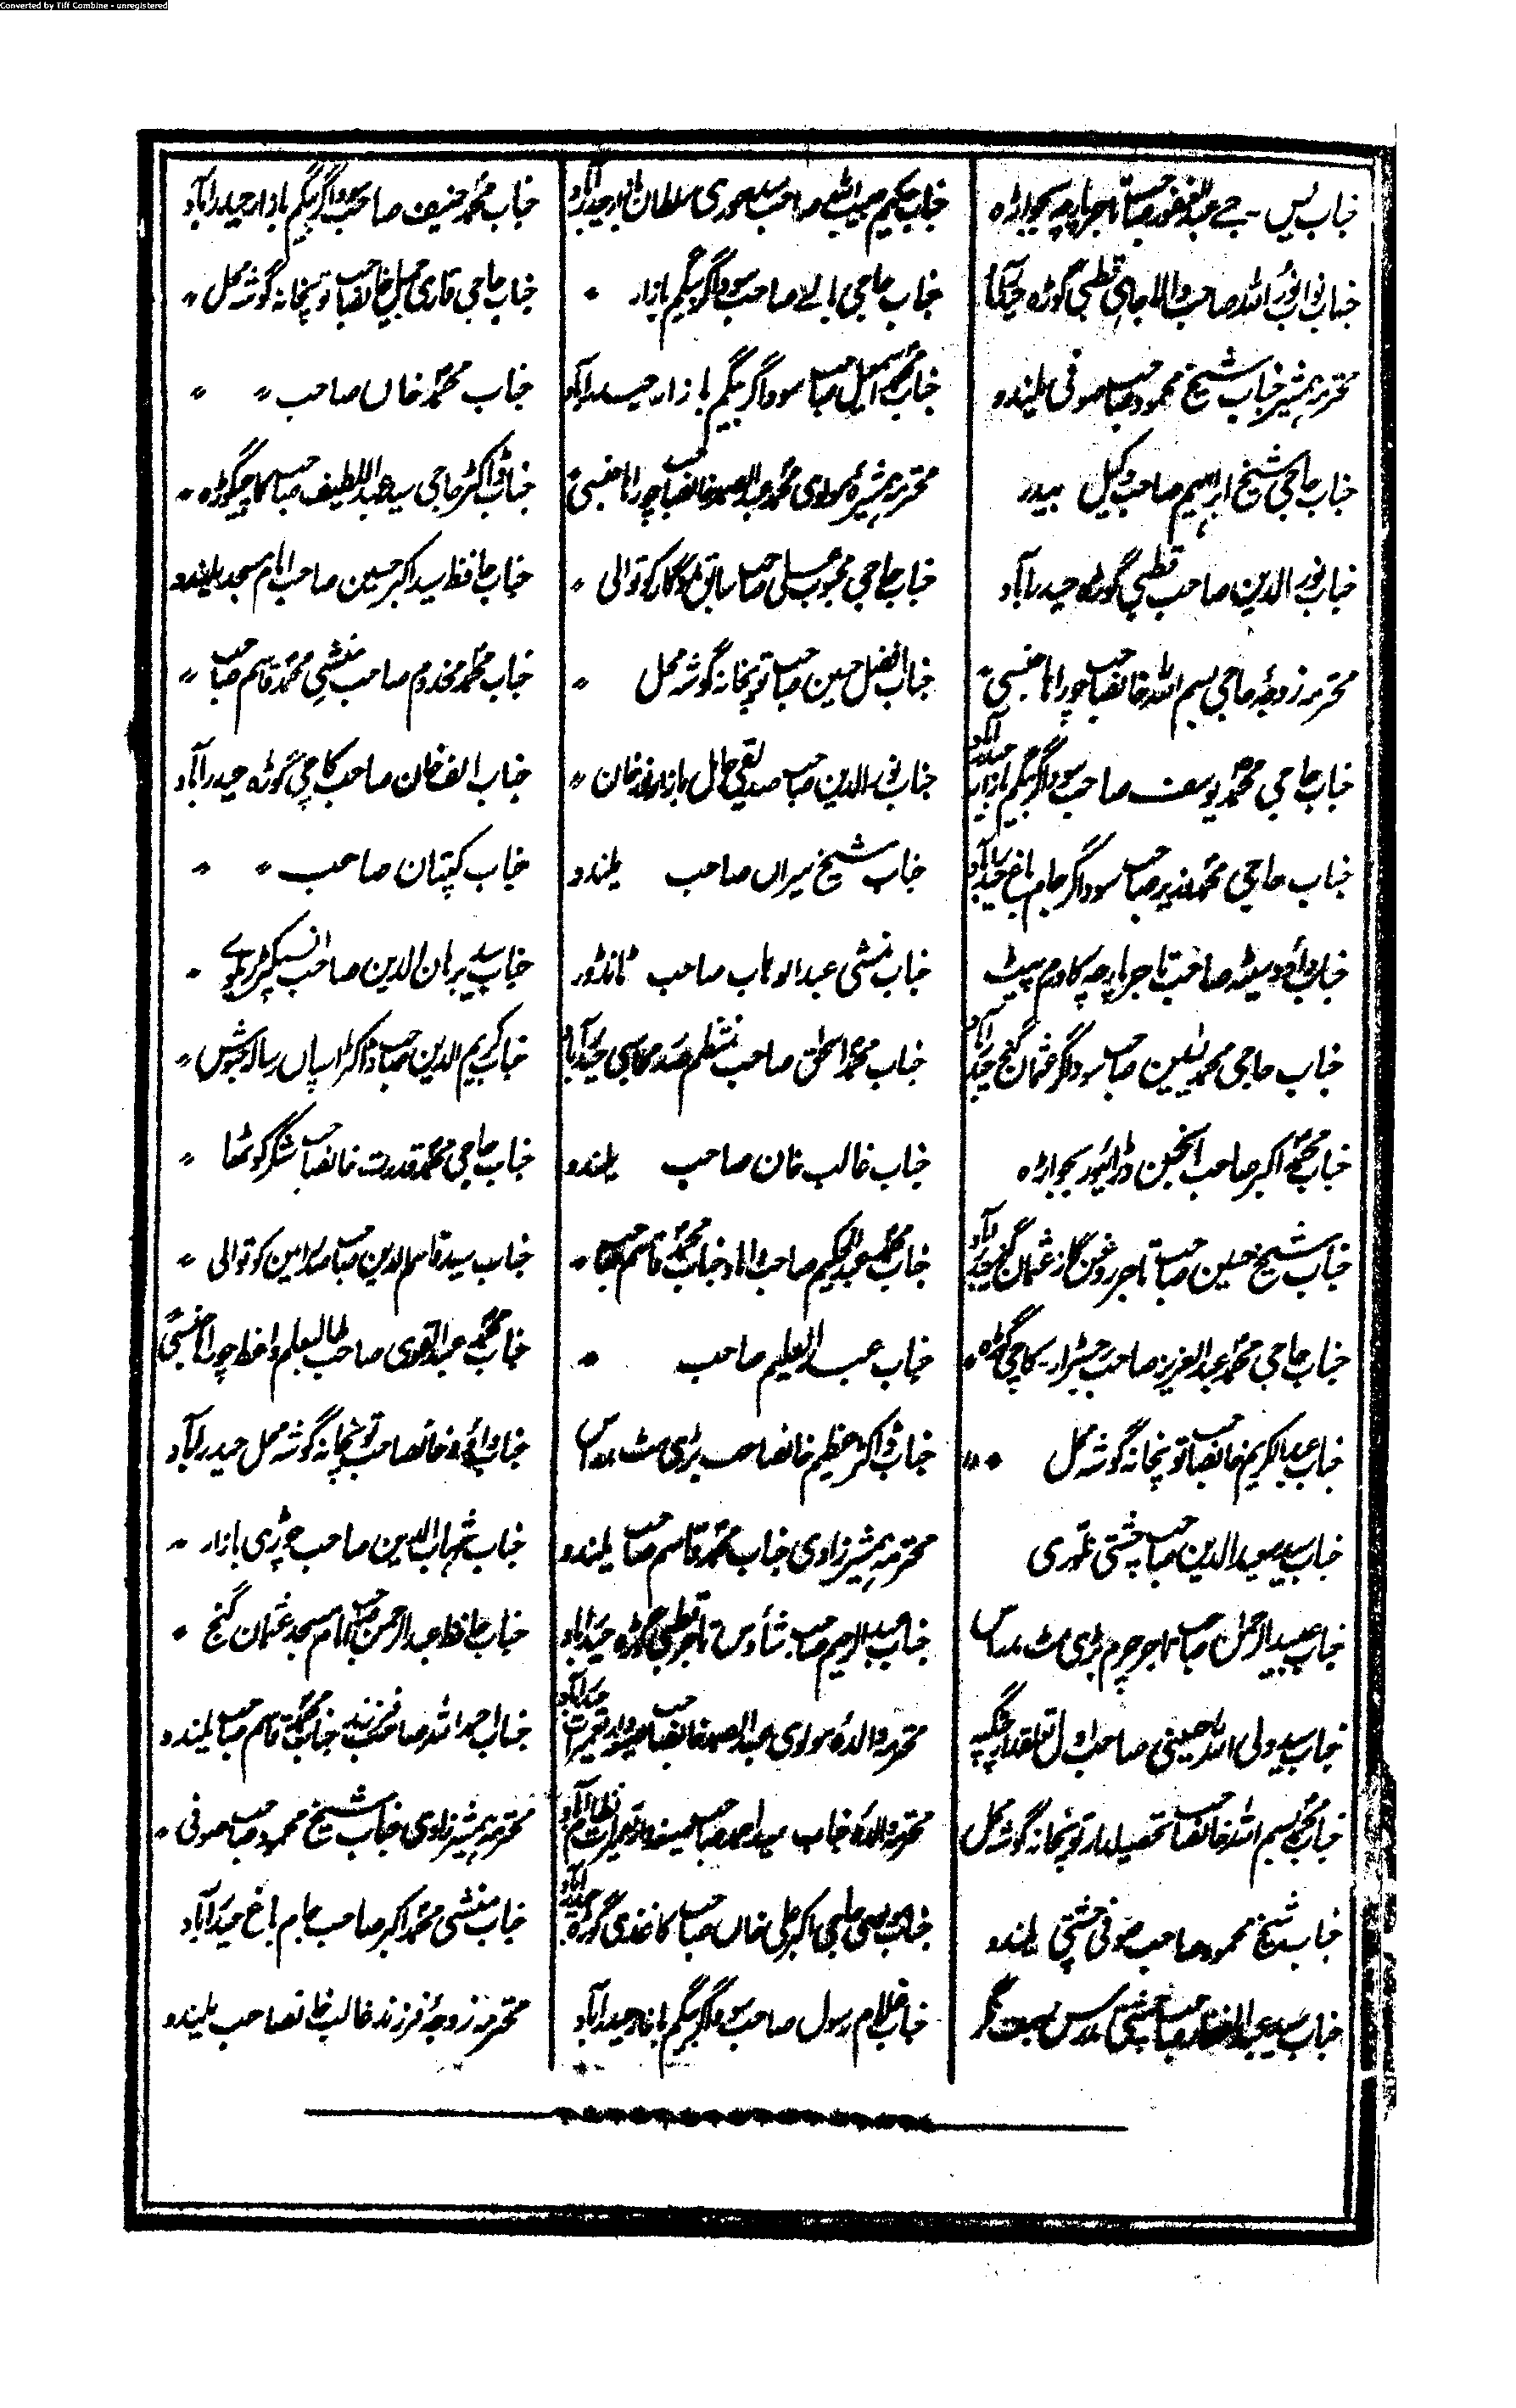 Converted by Tiff Combine - unregistered
جناب یس۔ جے عبدالغفور صاحب تاجر پارچہ بجواڑہ
جناب نواب نور اللہ صاحب والا جاہی قطبی گوڑہ
محترمہ ہمشیر جناب شیخ محمود صاحب صوفی یلندو
جناب حاجی شیخ ابراہیم صاحب وکیل بیدر
جناب نور الدین صاحب قطبی گوڑہ حیدرآباد
محترمہ زوجۂ حاجی بسم اللہ خانصاحب چوراہا جنسی ً
جناب حاجی محمد یوسف صاحب سوداگر بیگم بازار حیدرآباد
جناب حاجی محمد نذیر صاحب سوداگر جام باغ حیدرآباد
جناب داؤد سیٹھ صاحب تاجر پارچہ پیٹ
جناب حاجی محمد یٰسین صاحب سوداگر عثمان گنج حیدرآباد
جناب محمد اکبر صاحب انجن ڈرائیور بجواڑہ
جناب شیخ حسین صاحب تاجر روغن گاز عثمان گنج حیدرآباد
جناب حاجی محمد عبدالعزیز صاحب کاچی گوڑہ ״
جناب عبدالکریم خانصاحب توپخانہ گوشہ محل ״
جناب سید سعید الدین صاحب چشتی قادری
جناب عبید الرحمٰن صاحب تاجر چرم بڑی مٹ مدراس
جناب سید ولی اللہ حسینی صاحب اول تعلقدار
جناب محمد بسم اللہ خانصاحب تحصیلدار توپخانہ گوشہ محل
جناب شیخ محمود صاحب صوفی چشتی یلندو
جناب سید عبدالغفار صاحب مدرس
جناب حکیم صاحب سلطان حیدرآباد
جناب حاجی بالے صاحب سوداگر بیگم بازار ״
جناب محمد اسمٰعیل صاحب سوداگر بیگم بازار حیدرآباد
محترمہ ہمشیرہ مولوی محمد عبدالصمد خانصاحب چوراہا جنسی ً
جناب حاجی محبوب علی صاحب سابق مددگار کوتوالی ״
جناب افضل حسین صاحب توپخانہ گوشہ محل ״
جناب نور الدین صاحب صدیقی حال بازار نور خان ״
جناب شیخ میراں صاحب یلندو
جناب منشی عبدالوہاب صاحب ٹانڈور
جناب محمد اسحٰق صاحب منتظم صدر محاسبی حیدرآباد
جناب غالب خان صاحب یلندو
جناب محمد عبدالحکیم صاحب داماد جناب محمد قاسم صاحب ״
جناب عبدالعلیم صاحب ״
جناب ڈاکٹر عظیم خانصاحب بڑی مٹ مدراس
محترمہ ہمشیر زادی جناب محمد قاسم صاحب یلندو
جناب عبدالرحیم صاحب تاجر قطبی گوڑہ حیدرآباد
محترمہ والدہ مولوی عبدالصمد خانصاحب تعمیرات حیدرآباد
محترمہ والدۂ جناب سید احمد صاحب صیغہ دار تعمیرات نظام آباد
جناب اکبر علی خاں صاحب کاغذی گوڑہ حیدرآباد
جناب غلام رسول صاحب سوداگر بیگم بازار حیدرآباد
جناب محمد حنیف صاحب سوداگر بیگم بازار حیدرآباد
جناب حاجی قاری خانصاحب توپخانہ گوشہ محل ״
جناب محمد خاں صاحب ״ ״
جناب ڈاکٹر حاجی سید عبداللطیف صاحب کاچیگوڑہ ״
جناب حافظ سید اکبر حسین صاحب امام مسجد یلندو
جناب محمد مخدوم صاحب منشی محمد قاسم صاحب ״
جناب الف خان صاحب کاچی گوڑہ حیدرآباد
جناب کپتان صاحب ״ ״
جناب سید برہان الدین صاحب انسپکٹر ریلوے ״
جناب کریم الدین صاحب ڈاکٹر اسپاں رسالہ ״
جناب حاجی محمد قدرت خانصاحب ״
جناب سید قاسم الدین صاحب امین کوتوالی ״
جناب محمد عبدالقوی صاحب طالبعلم واعظ چوراہا جنسی ً
جناب داؤد خانصاحب توپخانہ گوشہ محل حیدرآباد
جناب شہاب الدین صاحب چوڑی بازار ״
جناب حافظ عبدالرحمٰن صاحب امام مسجد عثمان گنج ״
جناب احمد اللہ صاحب فرزند جناب محمد قاسم صاحب یلندو
محترمہ ہمشیر زادی جناب شیخ محمود صاحب صوفی ״
جناب منشی محمد اکبر صاحب جام باغ حیدرآباد
محترمہ زوجۂ فرزند غالب خانصاحب یلندو